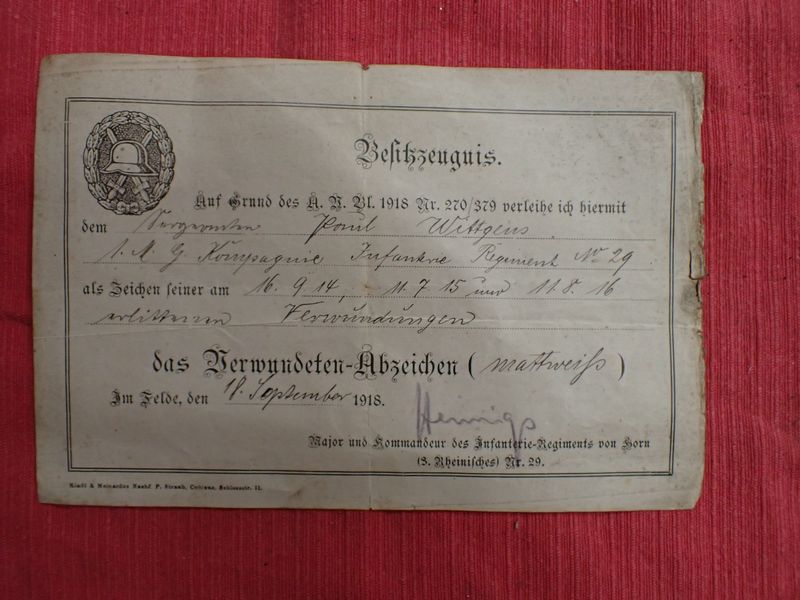 Besitzzeugnis.
Auf Grund des A. V. Bl. 1918 Nr. 270/379 verleihe ich hiermit
dem Sergeanten Paul Wittgens
1. M. G. Kompagnie Infanterie Regiment No 29
als Zeichen seiner am 16. 9. 14, 11. 7. 15 und 11. 8. 16
erlittenen Verwundungen
das Verwundeten-Abzeichen (mattweiß)
Im Felde, den 18. September 1918.
Hennigs
Major und Kommandeur des Infanterie-Regiments von Horn
(3. Rheinisches) Nr. 29.
Kindt & Meinardus Nachf. F. Straub, Coblenz, Schlossstr. 11.